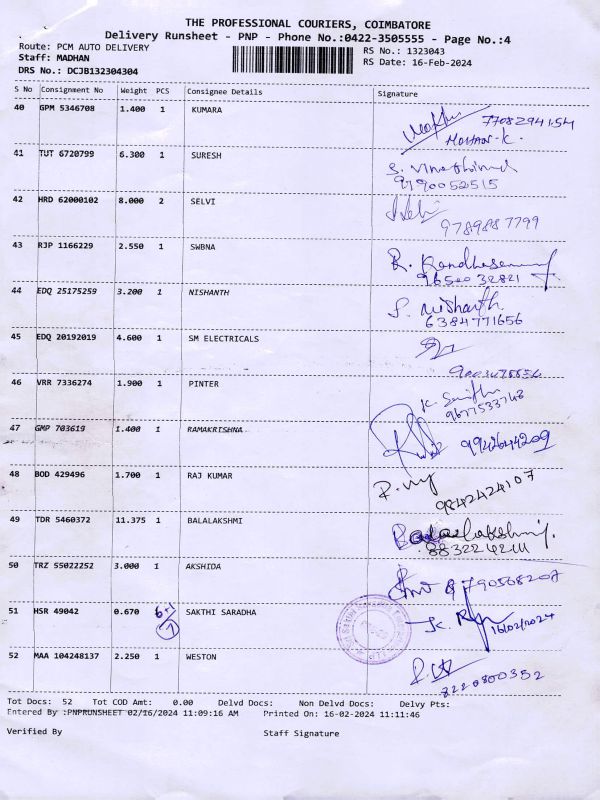 THE PROFESSIONAL COURIERS, COIMBATORE
Delivery Runsheet - PNP - Phone No.:0422-3505555 - Page No.:4
Route: PCM AUTO DELIVERY
RS No.: 1323043
Staff: MADHAN
RS Date: 16-Feb-2024
DRS No.: DCJB132304304
S No Consignment No Weight PCS Consignee Details Signature
40 GPM 5346708 1.400 1 KUMARA 7708294154
MOHAN-K.
41 TUT 6720799 6.300 1 SURESH
9790052515
42 HRD 62000102 8.000 2 SELVI
9789887799
43 RJP 1166229 2.550 1 SWBNA R. Kandhasamy
96500 32821
44 EDQ 25175259 3.200 1 NISHANTH S. Nishanth
6384771656
45 EDQ 20192019 4.600 1 SM ELECTRICALS
46 VRR 7336274 1.900 1 PINTER
9677533748
47 GMP 703619 1.400 1 RAMAKRISHNA 9942644209
48 BOD 429496 1.700 1 RAJ KUMAR
9842424107
49 TDR 5460372 11.375 1 BALALAKSHMI Balalakshmi.
8832242411
50 TRZ 55022252 3.000 1 AKSHIDA
51 HSR 49042 0.670 6+1 SAKTHI SARADHA
7 16/02/2024
52 MAA 104248137 2.250 1 WESTON
8220800352
Tot Docs: 52 Tot COD Amt: 0.00 Delvd Docs: Non Delvd Docs: Delvy Pts:
Entered By :PNPRUNSHEET 02/16/2024 11:09:16 AM Printed On: 16-02-2024 11:11:46
Verified By Staff Signature